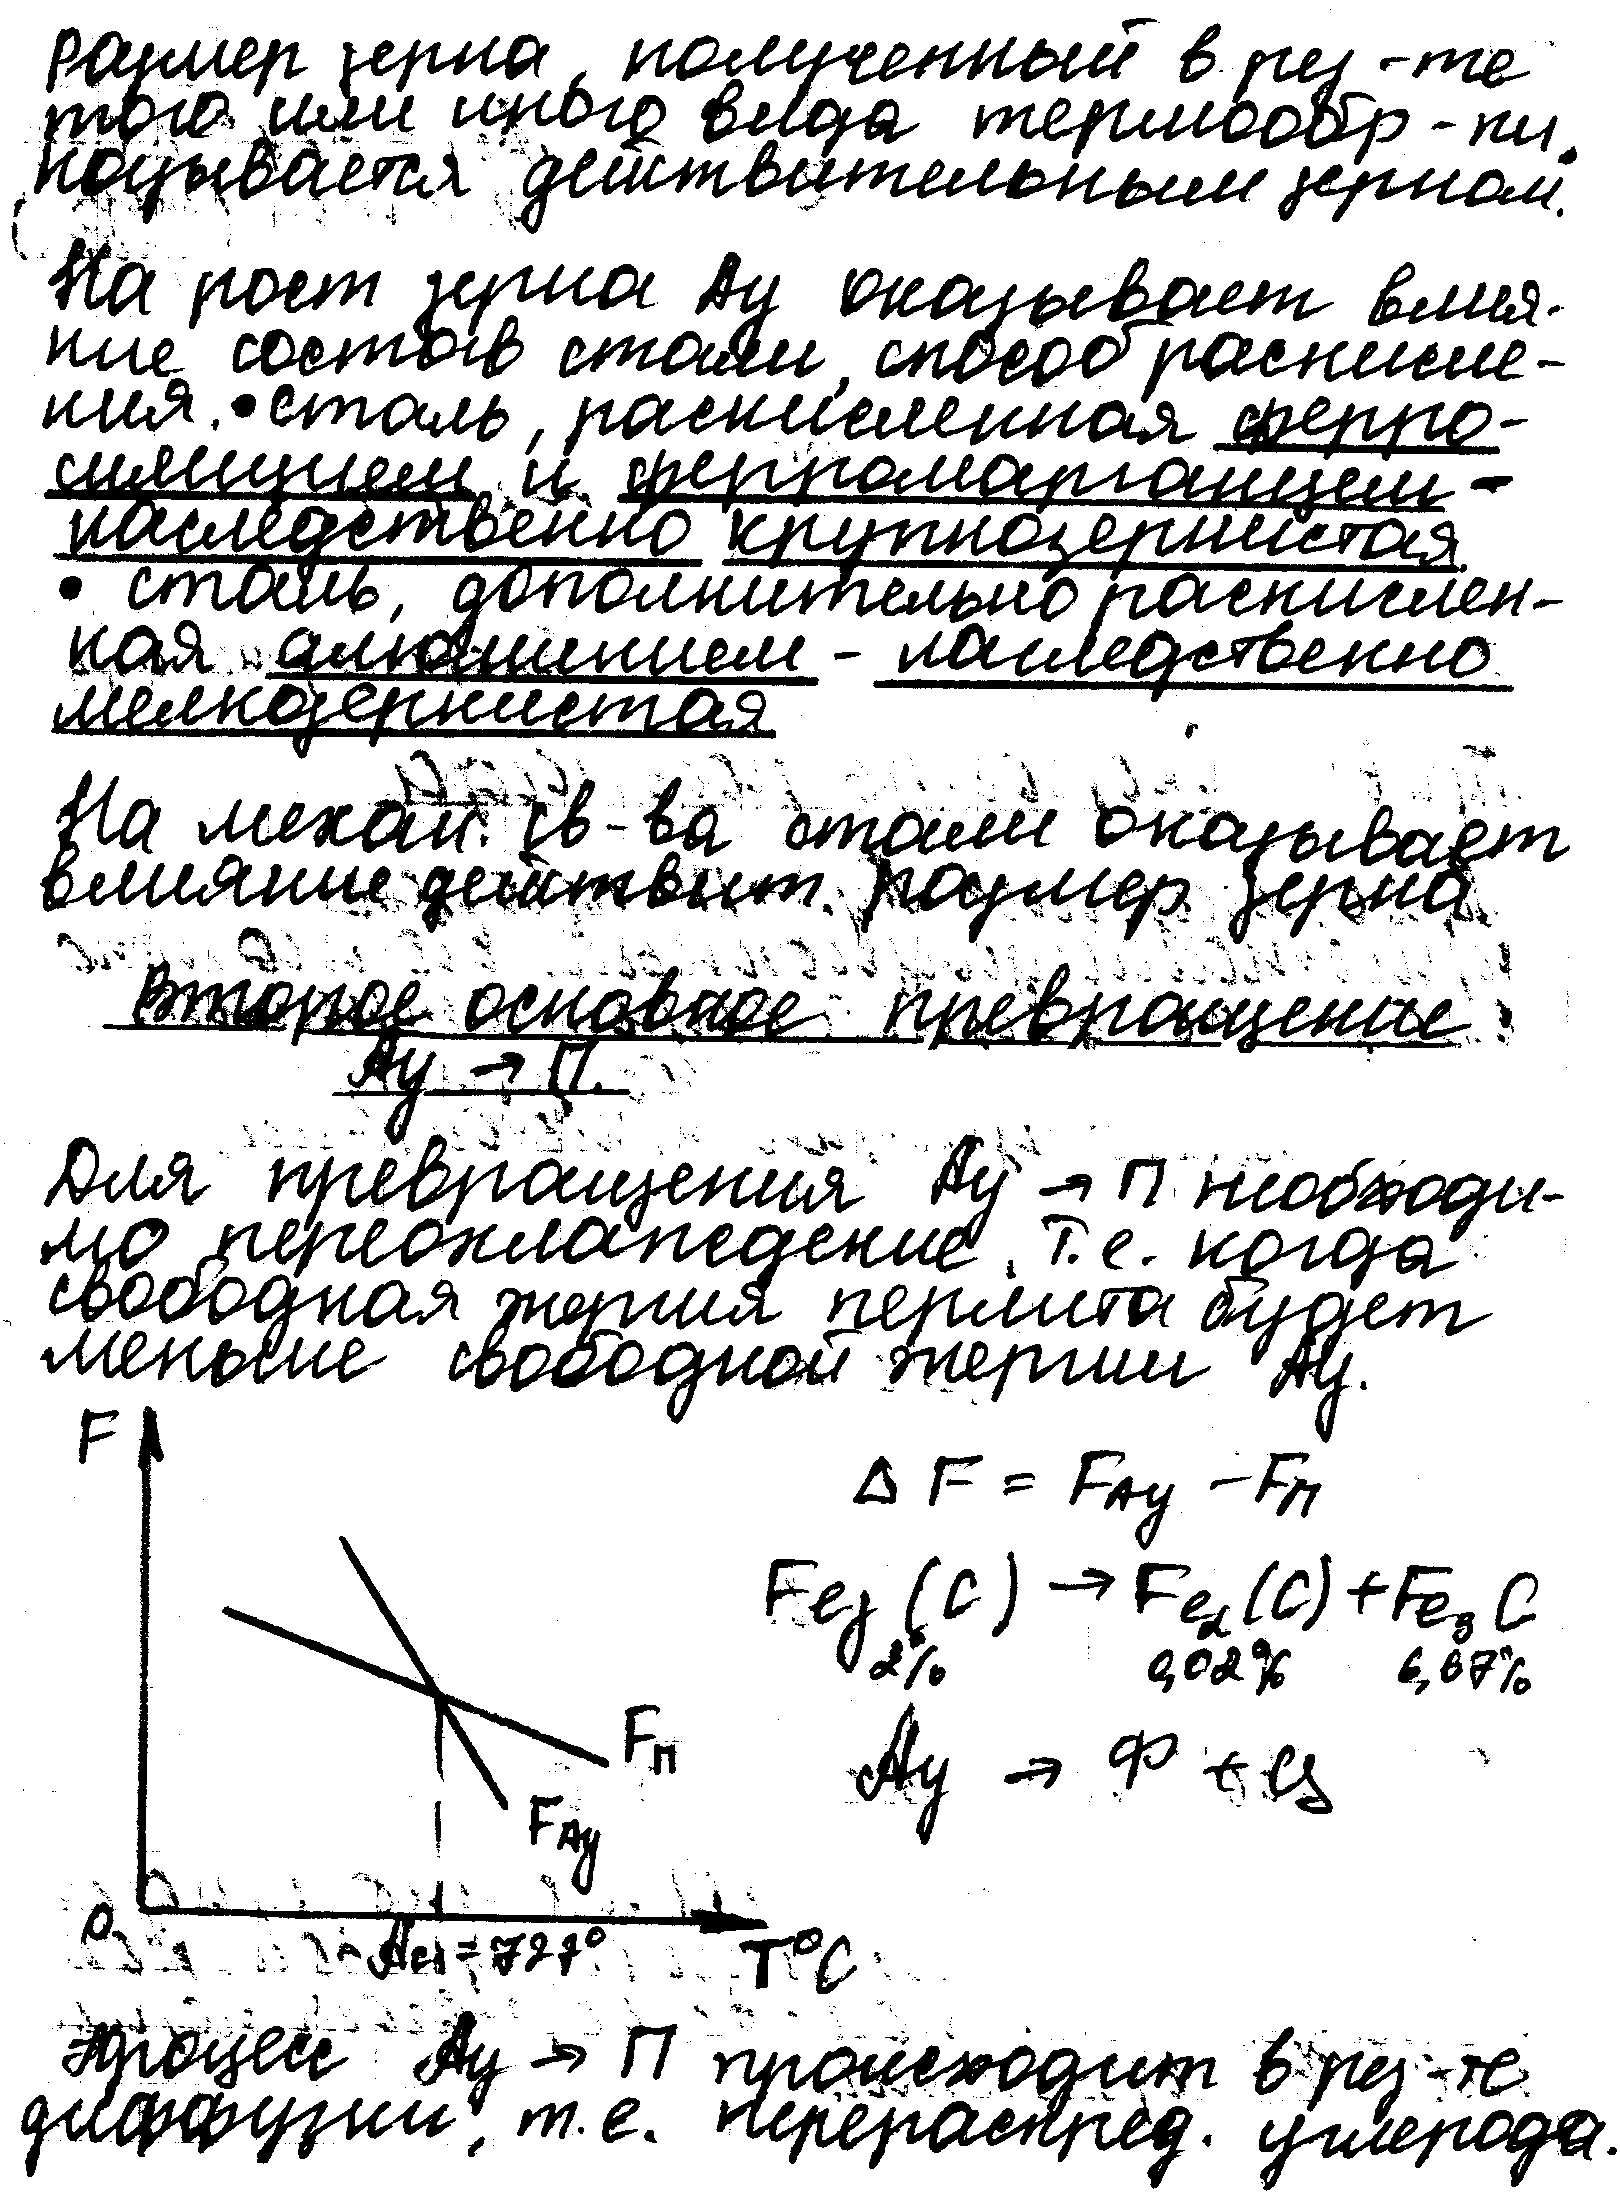 Размер зерна, полученный в рез-те
того или иного вида термообр-ки,
называется действительным зерном.
На рост зерна Ау оказывает влия-
ние состав стали, способ раскисле-
ния. • сталь, раскисленная ферро-
силицием и ферромарганцем -
наследственно крупнозернистая
• сталь, дополнительно раскислен-
ная алюминием - наследственно
мелкозернистая
На механ. св-ва стали оказывает
влияние действит. размер зерна.
Второе основное превращение
Ау → П.
Для превращения Ау → П необходи-
мо переохлаждение, т.е. когда
свободная энергия перлита будет
меньше свободной энергии Ау.
F
Δ F = FАу - FП
Feγ (C) → Feα (C) + Fe3 C
2% 0,02% 6,67%
Ау → Ф + Ц
FП
FАу
0
Ac1 = 727°
T°C
Процесс Ау → П происходит в рез-те
диффузии, т.е. перераспред. углерода.